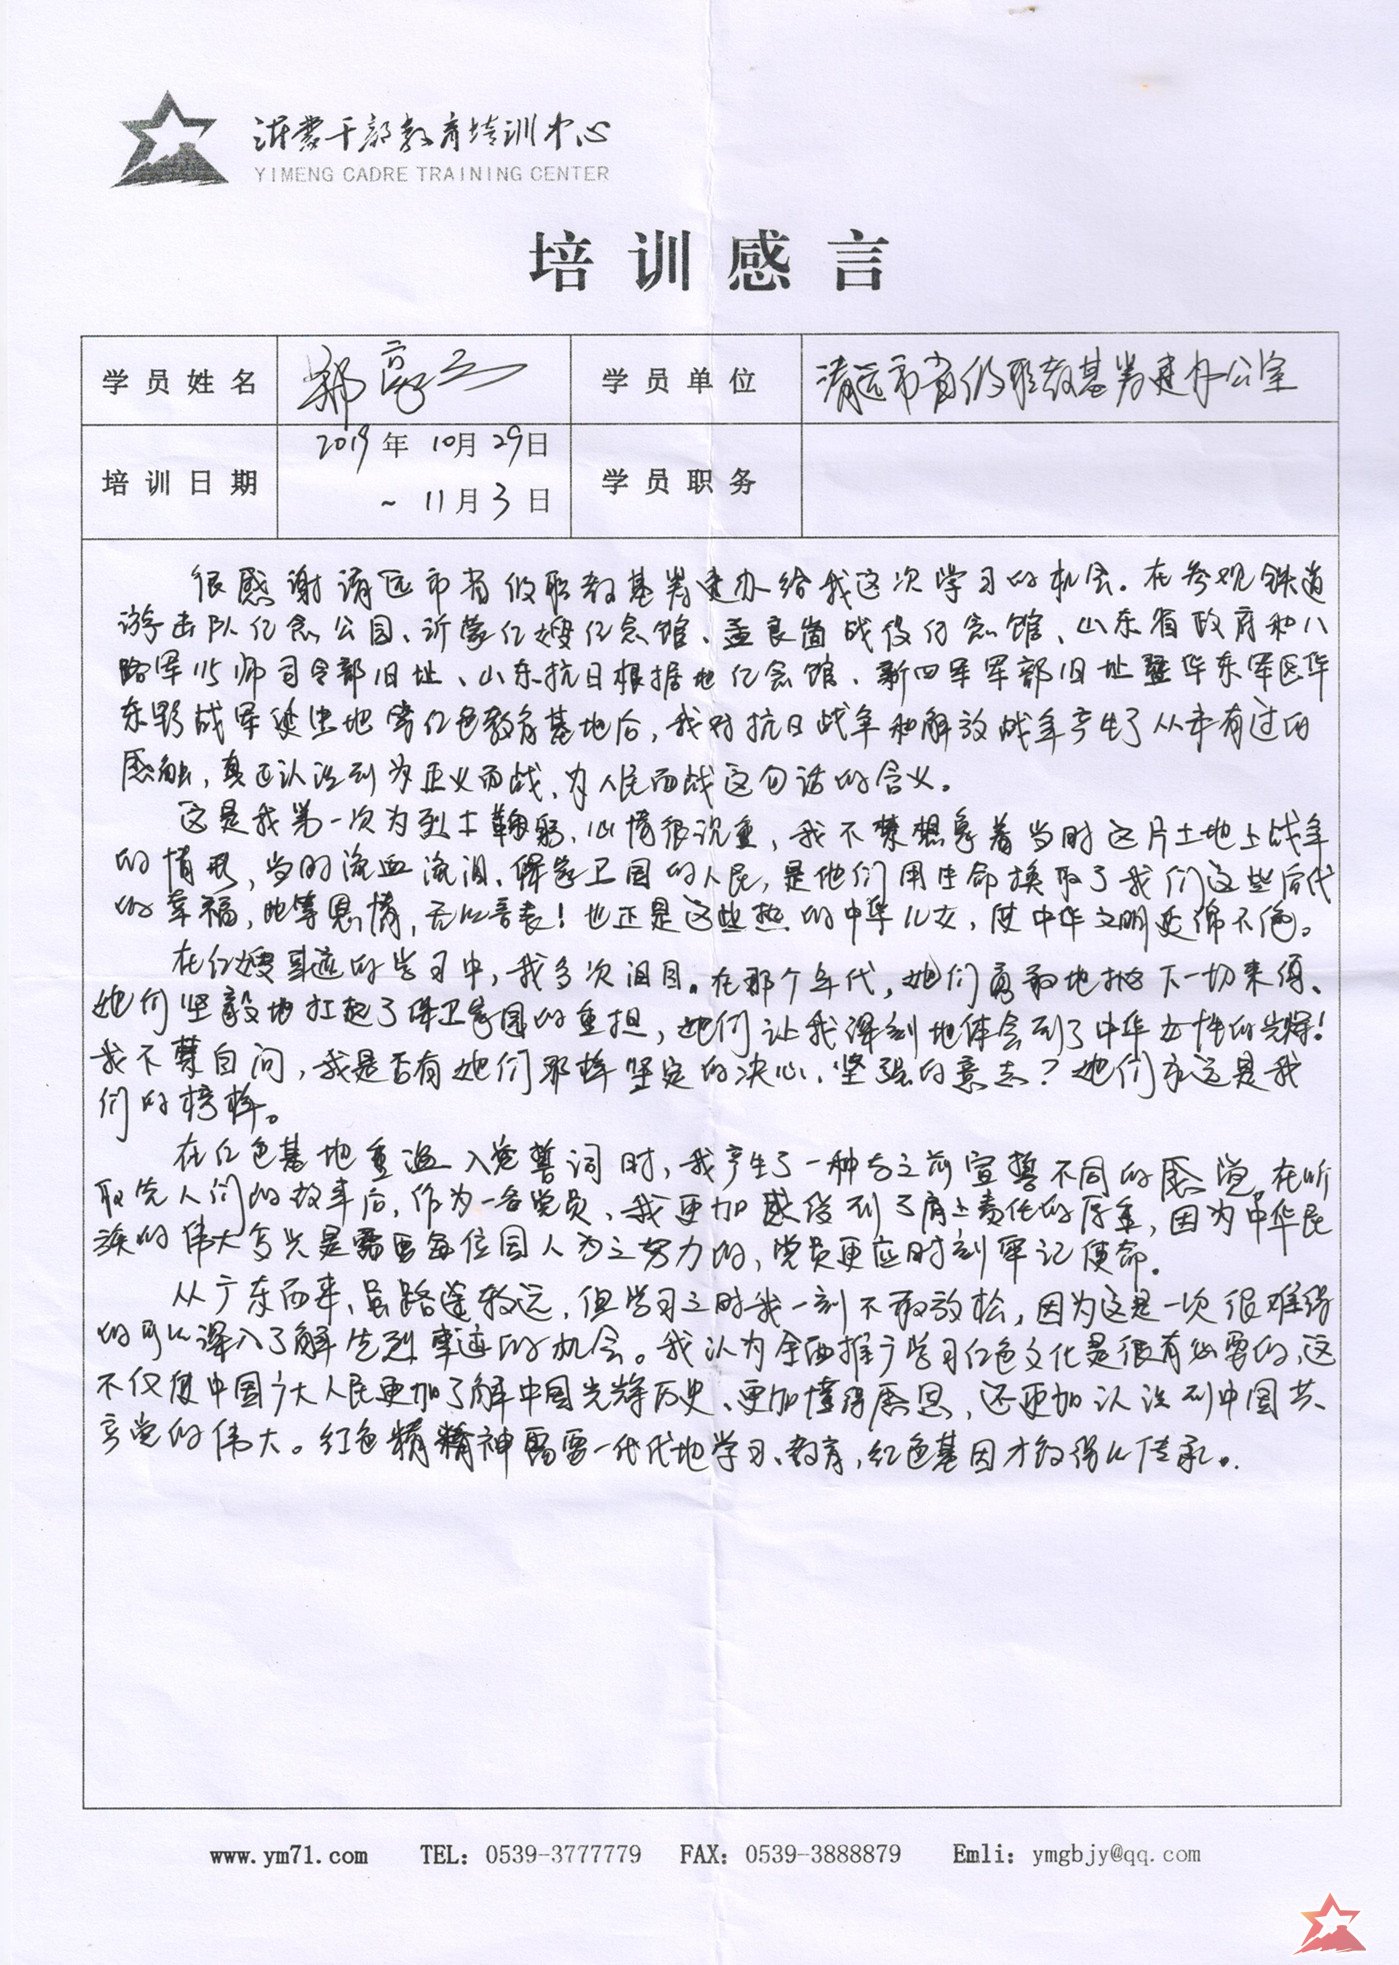 沂蒙干部教育培训中心
YIMENG CADRE TRAINING CENTER
培训感言
学员姓名 郑 学员单位 清远市省级职教基地筹建办公室
2019年10月29日
培训日期 学员职务
~ 11月3日
很感谢清远市省级职教基筹建办给我这次学习的机会。在参观铁道
游击队纪念公园、沂蒙红嫂纪念馆、孟良崮战役纪念馆、山东省政府和八
路军115师司令部旧址、山东抗日根据地纪念馆、新四军军部旧址暨华东军区华
东野战军诞生地等红色教育基地后，我对抗日战争和解放战争产生了从未有过的
感触，真正认识到为正义而战、为人民而战这句话的含义。
这是我第一次为烈士鞠躬，心情很沉重，我不禁想象着当时这片土地上战争
的情形，当时流血流泪、保家卫国的人民，是他们用生命换取了我们这些后代
的幸福，此等恩情，无以言表！也正是这些热的中华儿女，使中华文明延绵不绝。
在红嫂事迹的学习中，我多次泪目。在那个年代，她们勇敢地抛下一切束缚、
她们坚毅地扛起了保卫家园的重担，她们让我深刻地体会到了中华女性的光辉！
我不禁自问，我是否有她们那样坚定的决心、坚强的意志？她们永远是我
们的榜样。
在红色基地重温入党誓词时，我产生了一种与之前宣誓不同的感觉，在听
取先人们的故事后，作为一名党员，我更加感受到了肩上责任的厚重，因为中华民
族的伟大复兴是需要每位国人为之努力的，党员更应时刻牢记使命。
从广东而来，虽路途较远，但学习之时我一刻不敢放松，因为这是一次很难得
的可以深入了解先烈事迹的机会。我认为全面推广学习红色文化是很有必要的，这
不仅使中国广大人民更加了解中国光辉历史、更加懂得感恩，还更加认识到中国共
产党的伟大。红色精精神需要一代代地学习、教育，红色基因才能得以传承。
www.ym71.com TEL：0539-3777779 FAX：0539-3888879 Emli：ymgbjy@qq.com